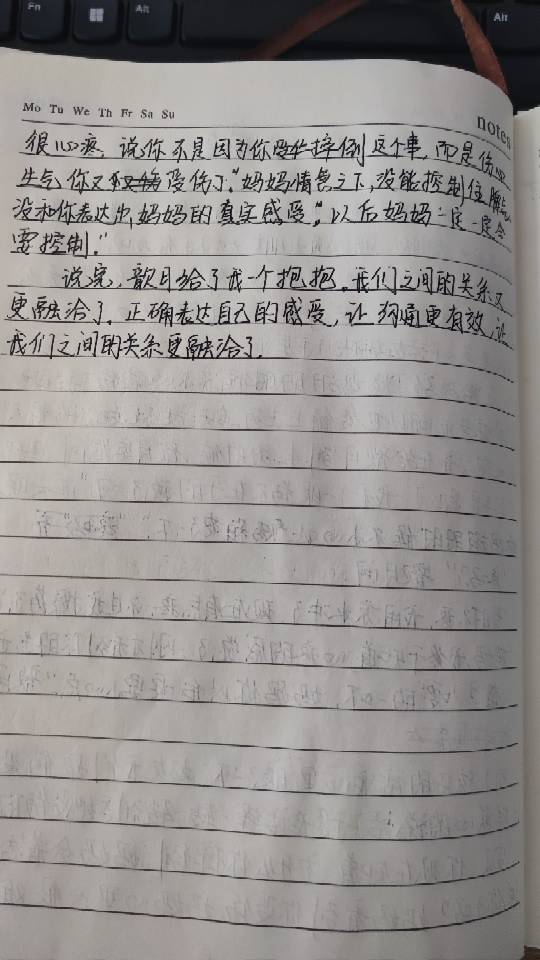 Fn
Alt
Alt
Mo Tu We Th Fr Sa Su
notes
很心疼，说你不是因为你摔倒这个事，而是伤心
生气你又受伤了."妈妈情急之下，没能控制住脾气
没和你表达出，妈妈的真实感受."以后妈妈一定一定会
要控制."
说完，歆月给了我一个抱抱，我们之间的关系又
更融洽了.正确表达自己的感受，让沟通更有效，让
我们之间的关系更融洽了.